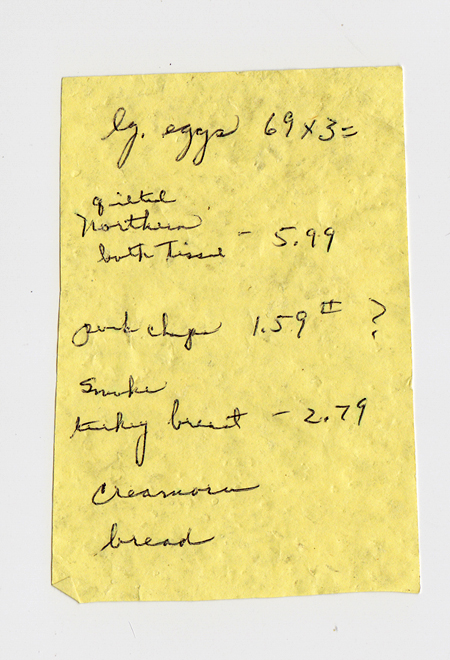 lg. eggs 69 x 3 =
quilted
Northern
bath Tissue - 5.99
pork chops 1.59 # ?
Smoke
turkey breast - 2.79
Creamora
bread